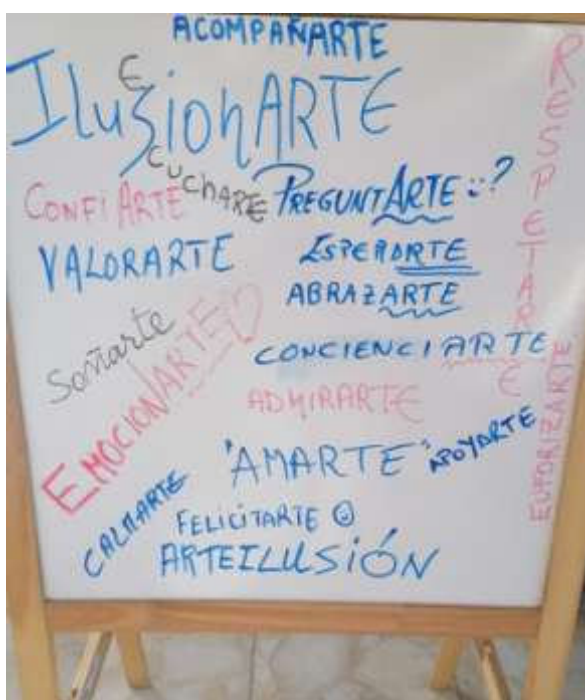 ACOMPAÑARTE
IlusionARTE
EsCUchARtE
CONFIARTE
PREGUNTARTE ¨?
VALORARTE
ESPERARTE
ABRAZARTE
Soñarte
EMOCIONARTE♡
CONCIENCIARTE
ADMIRARTE
RESPETARTE
EUFORIZARTE
"AMARTE"
APOYARTE
CALMARTE
FELICITARTE ☺
ARTEILUSIÓN